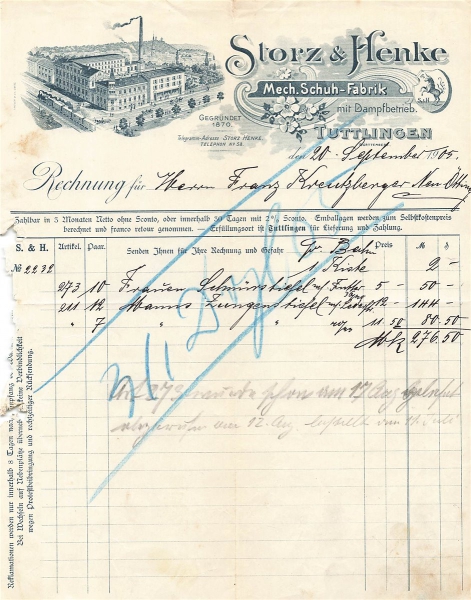 Storz & Henke
Mech. Schuh-Fabrik
mit Dampfbetrieb.
GEGRÜNDET
1870.
Telegramm-Adresse: STORZ HENKE.
TELEPHON No 58.
S&H
TUTTLINGEN
den 20. September 1905.
Rechnung für Herrn Franz Kreutzberger Neu-Ötting
Zahlbar in 3 Monaten Netto ohne Sconto, oder innerhalb 30 Tagen mit 2% Sconto. Emballagen werden zum Selbstkostenpreis
berechnet und franco retour genommen. Erfüllungsort ist Tuttlingen für Lieferung und Zahlung.
S. & H. Artikel. Paar. Senden Ihnen für Ihre Rechnung und Gefahr pr. Bahn Preis M. ₰
№ 2232 1 Kiste 2 -
273 10 Frauen Schnürstiefel m/ Futter 5 - 50 -
211 12 Manns Zungenstiefel 12 - 144 -
" 7 " " 11.50 80.50
Mk 276.50
Reklamationen werden nur innerhalb 8 Tagen nach Empfang
Bei Wechseln auf Nebenplätze übernehmen keine Verbindlichkeit
wegen Protestbeibringung und rechtzeitiger Rücksendung.